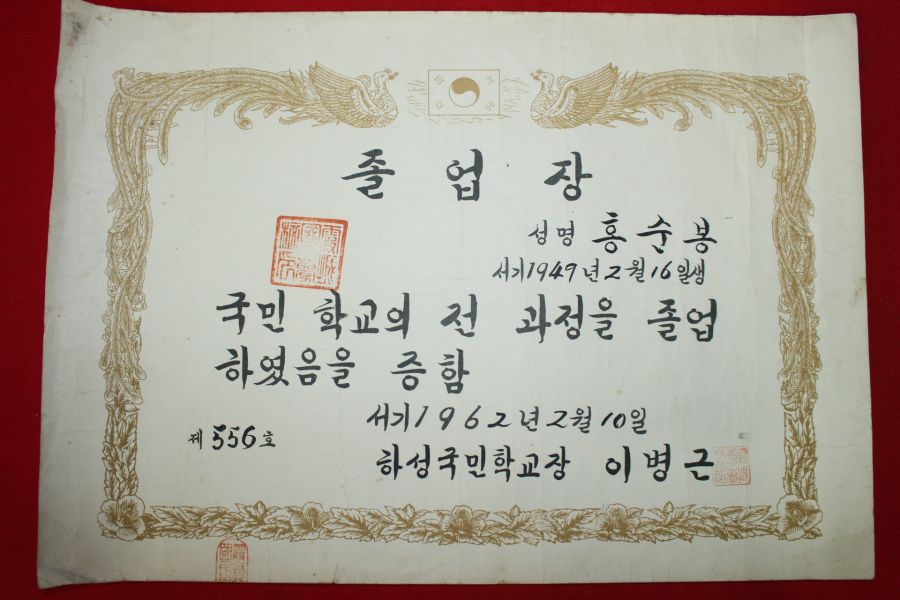 졸업장
성명 홍순봉
서기1949년2월16일생
국민 학교의 전 과정을 졸업
하였음을 증함
서기1962년2월10일
제556호
하성국민학교장 이병근